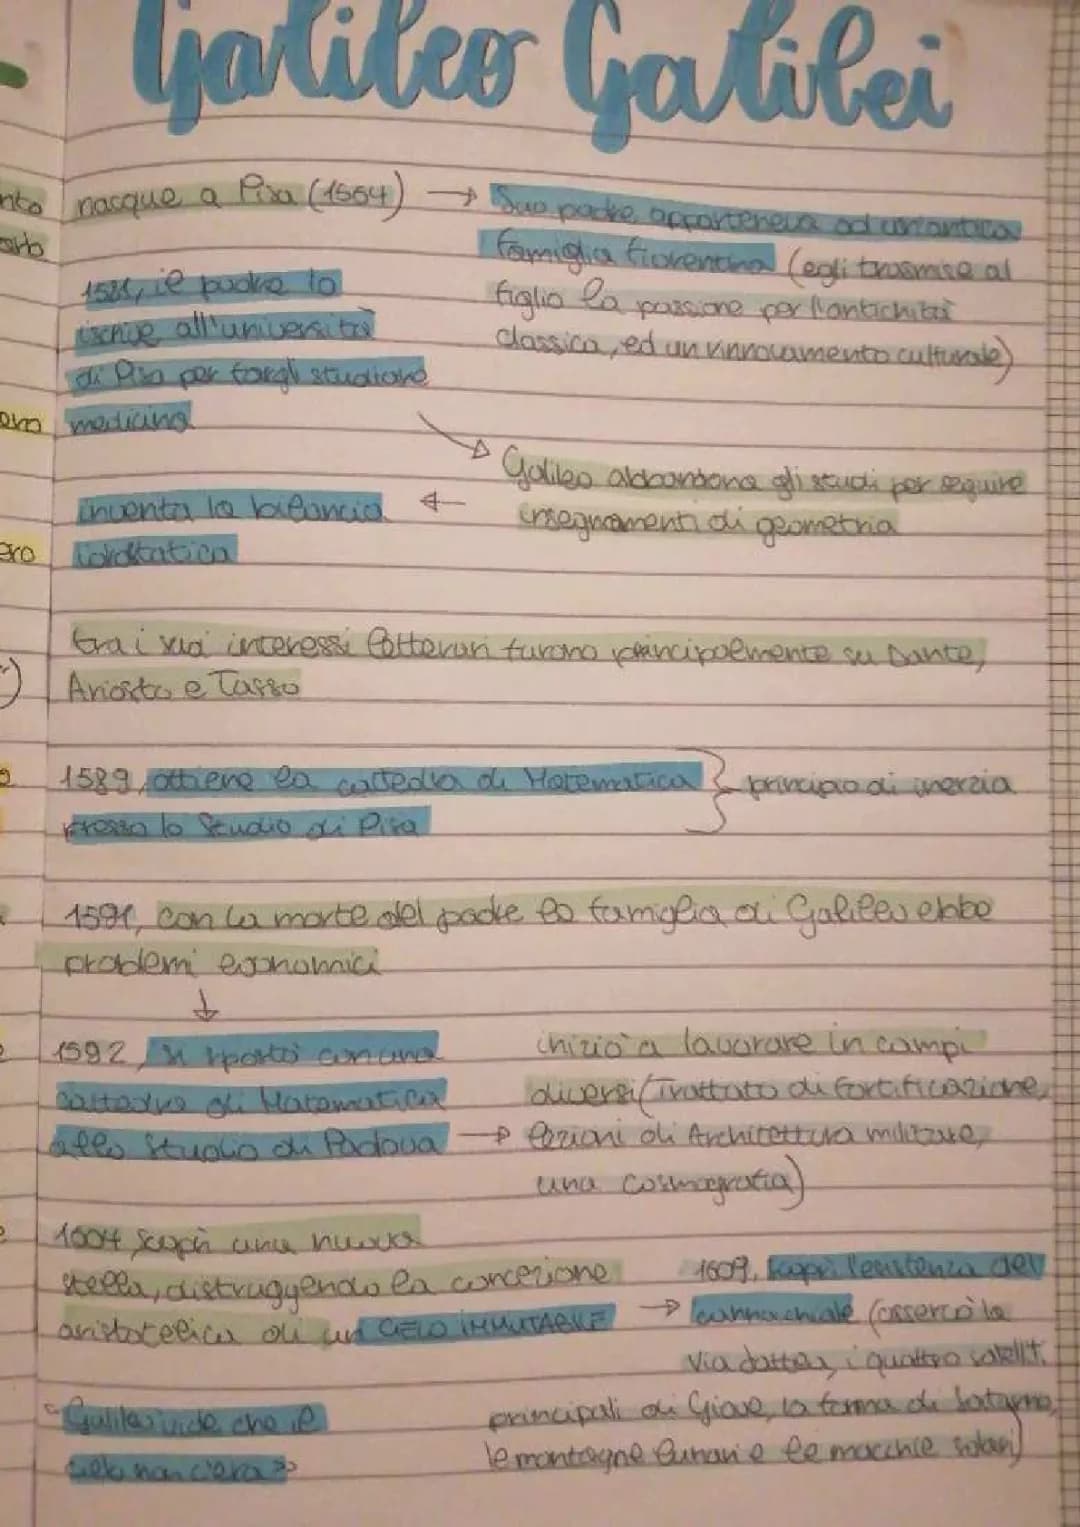 Galileo Galilei
nto
nacque a Pisa (1564) → Suo padre apparteneva ad un'antica
famiglia fiorentina (egli trasmise al
figlio la passione per l'antichità
classica, ed un rinnovamento culturale)
1581, il padre lo
iscrive all'università
di Pisa per fargli studiare
medicina
Galileo abbandona gli studi per seguire
insegnamenti di geometria
inventa la bilancia
idrostatica
ero
tra i suoi interessi letterari furono principalmente su Dante,
Ariosto e Tasso
1589, ottiene la cattedra di Matematica
presso lo Studio di Pisa
principio di inerzia
1591, con la morte del padre la famiglia di Galileo ebbe
problemi economici
↓
1592, si spostò con una
cattedra di Matematica
allo Studio di Padova →
inizio a lavorare in campi
diversi (Trattato di fortificazione,
lezioni di Architettura militare,
una cosmografia)
1604 scoprì una nuova
stella, distruggendo la concezione
aristotelica di un CIELO IMMUTABILE →
1609, scoprì l'esistenza del
cannochiale (osservò la
via lattea, i quattro satelliti
principali di Giove, la forma di Saturno,
le montagne lunari e le macchie solari)
Galileo vide che il
cielo non c'era